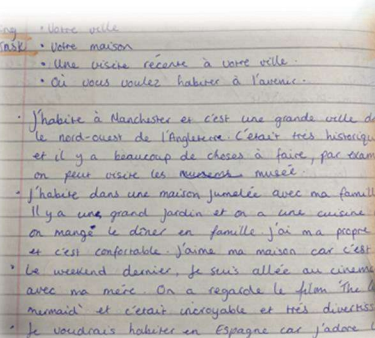 • Votre ville
Task • Votre maison
• Une visite récente à votre ville.
• Où vous voulez habiter à l'avenir.
• J'habite à Manchester et c'est une grande ville d
le nord-ouest de l'Angleterre. C'était très historiqu
et il y a beaucoup de choses à faire, par exam
on peut visite les musée.
• J'habite dans une maison jumelée avec ma famill
Il y a une grand jardin et on a une cuisine
on mangé le dîner en famille j'ai ma propre
et c'est confortable. J'aime ma maison car c'est
• Le weekend dernier, Je suis allée au cinéma
avec ma mère. On a regarde le film 'The
mermaid' et c'était incroyable et très divertiss
• Je voudrais habiter en Espagne car j'adore